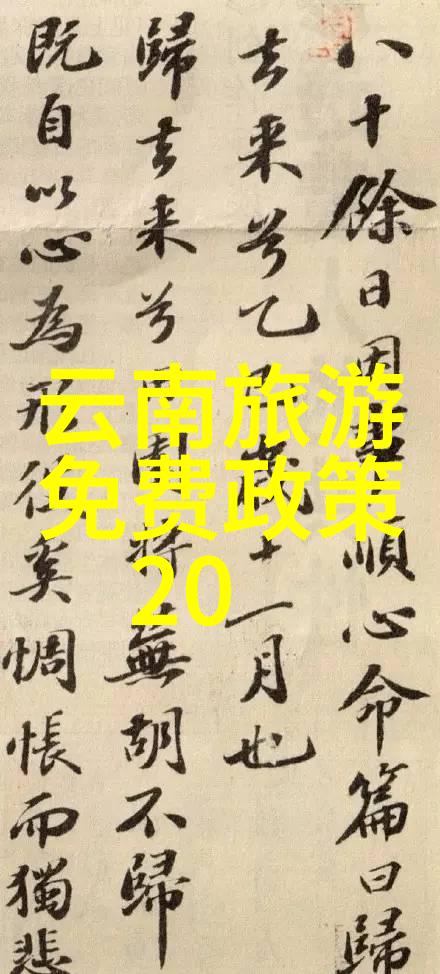 八十餘日因順心命篇曰歸
去来兮乙歲十一月也
歸去来兮園将蕪胡不歸
既自以心為形役奚惆悵而獨悲
云南旅游
免费政策
20